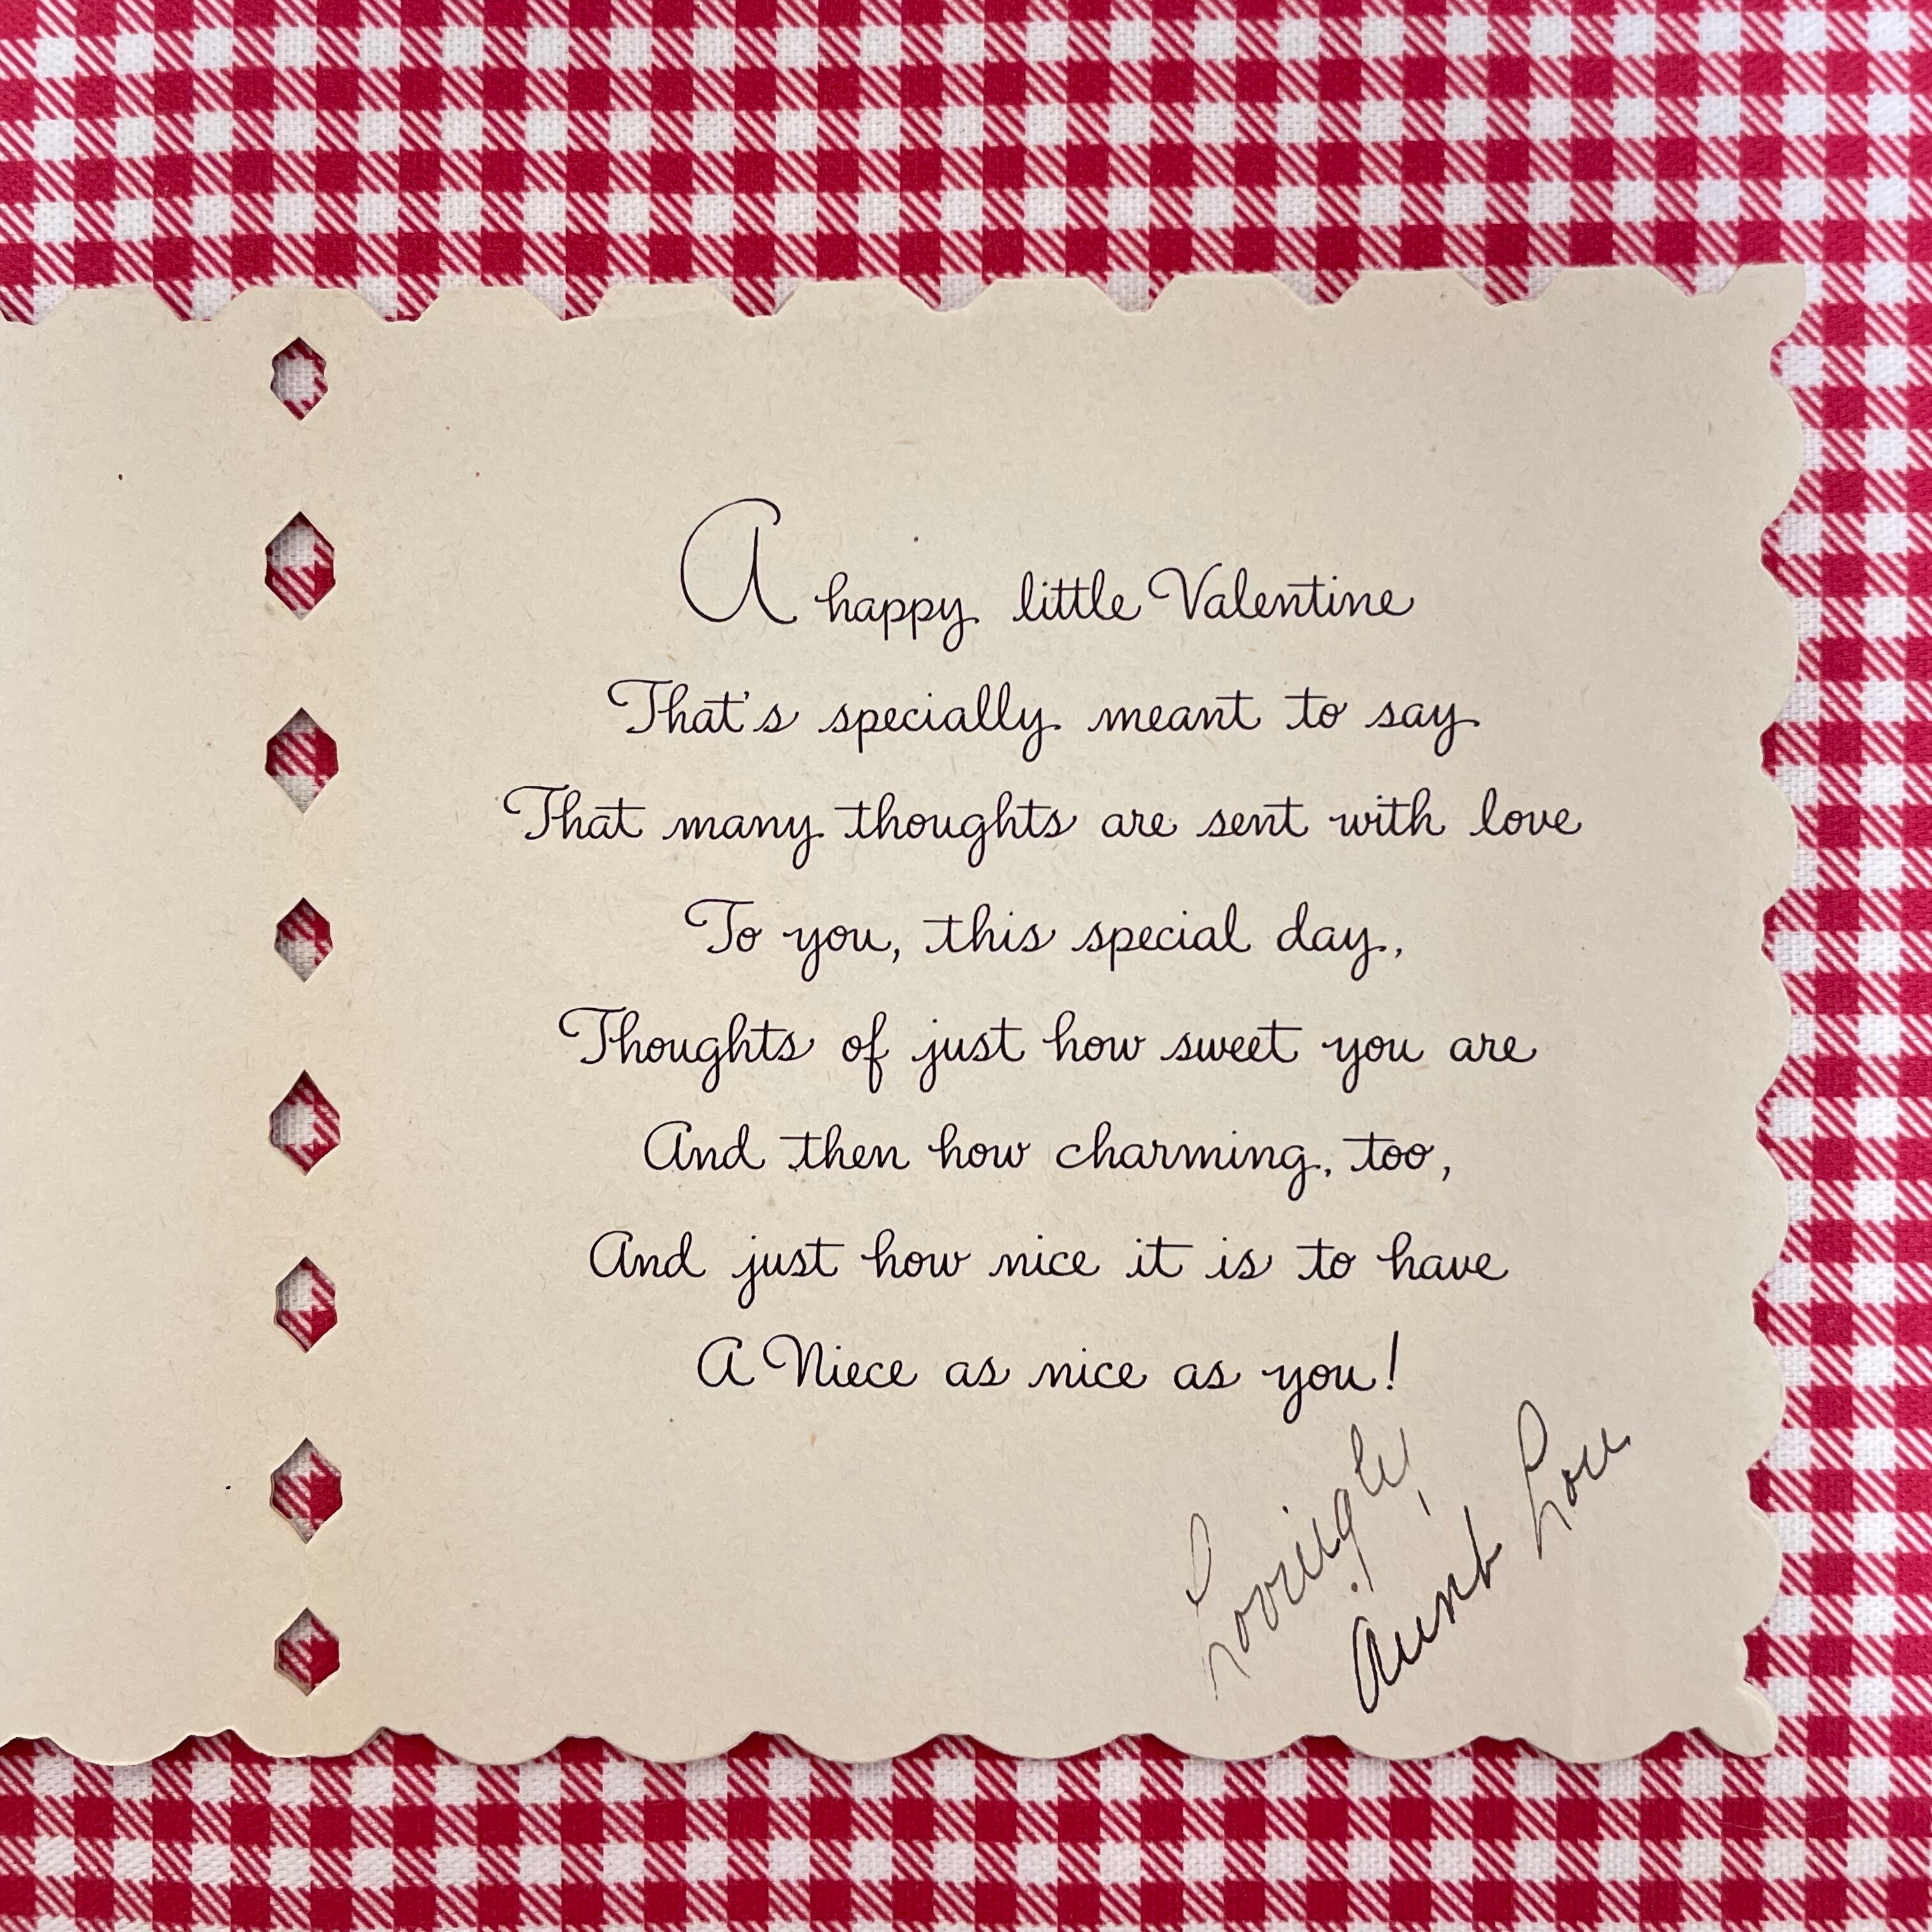 A happy little Valentine
That's specially meant to say
That many thoughts are sent with love
To you, this special day,
Thoughts of just how sweet you are
And then how charming, too,
And just how nice it is to have
A Niece as nice as you!
Lovingly,
Aunt Lou